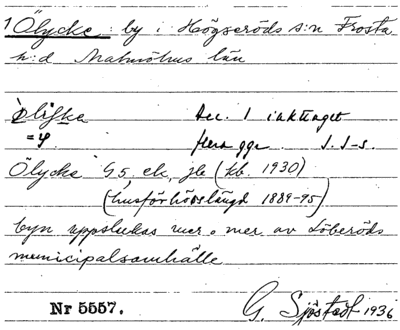 1 Ölycke: by i Högseröds s:n Frosta
h:d Malmöhus län
Acc. 1 iakttaget
=φ flera ggr J. J-s.
Ölycke G5 ek, jb (kb. 1930)
(husförhörslängd 1889-95)
byn uppslukas mer o mer av Löberöds
municipalsamhälle
Nr 5557. G. Sjöstedt 1936